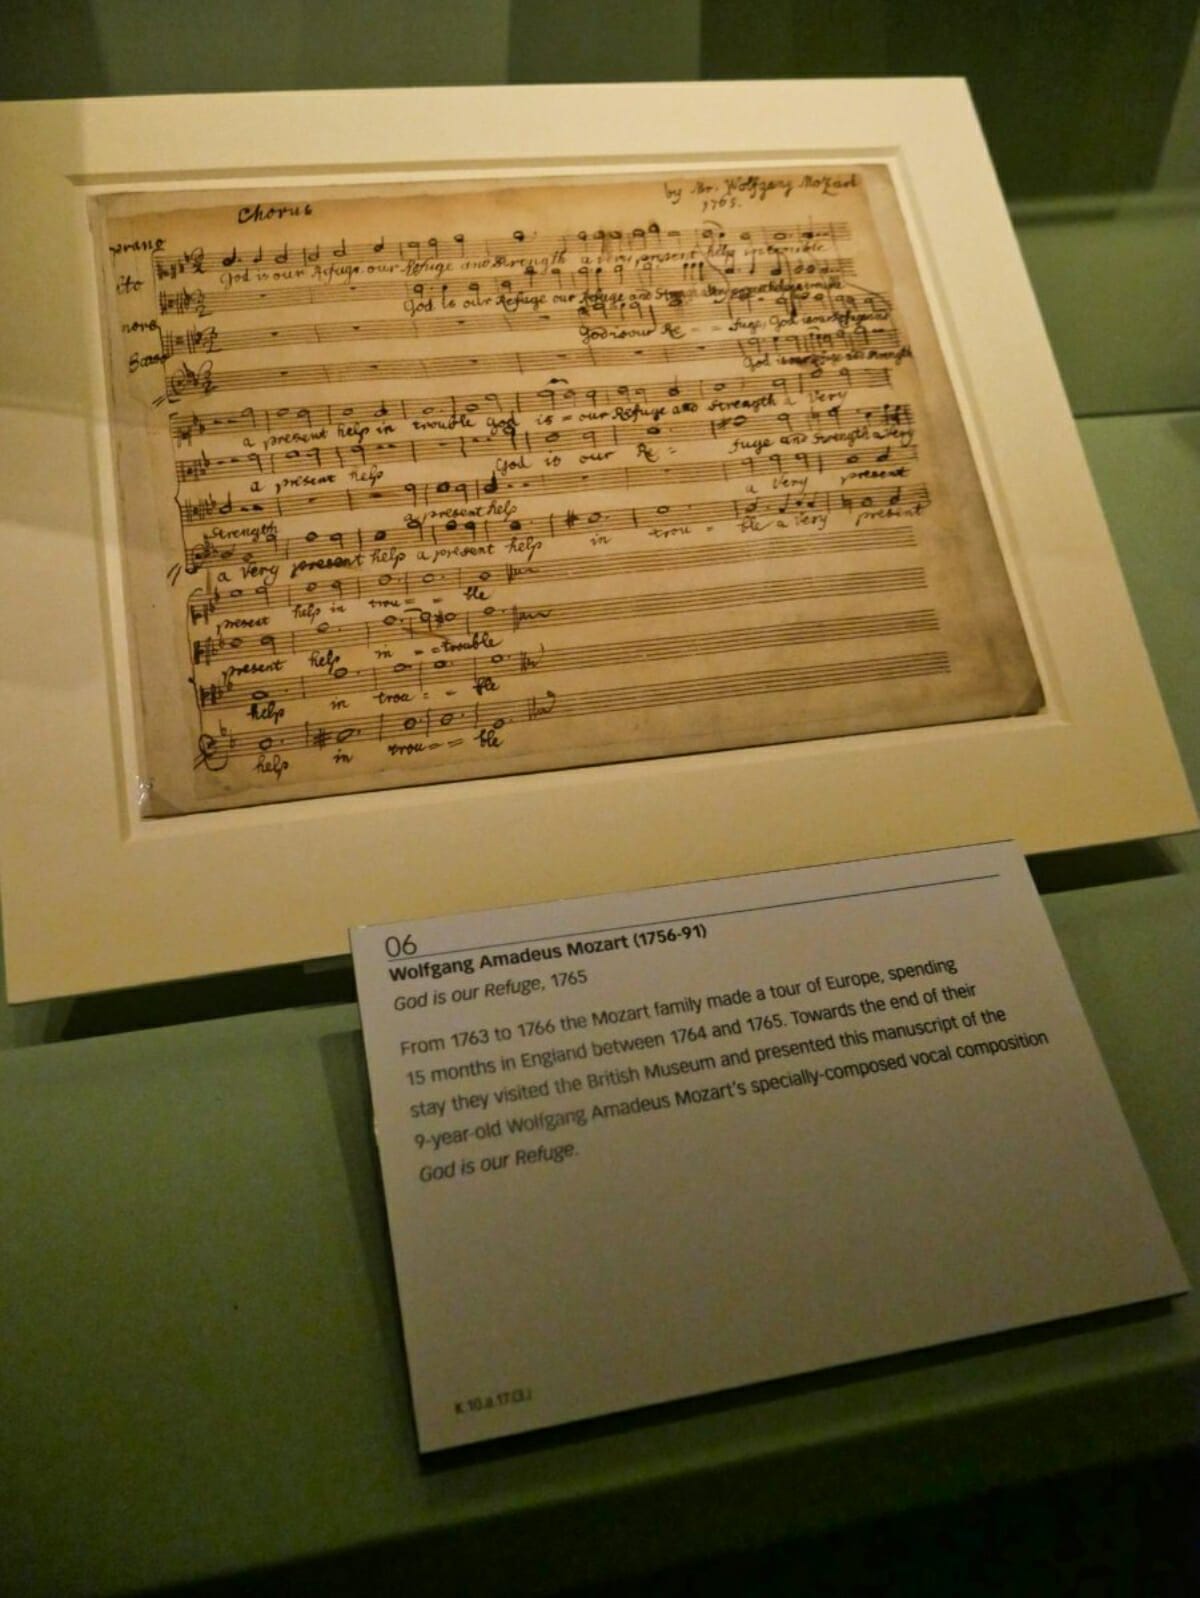 Chorus
by Mr. Wolfgang Mozart
1765.
prano
lto
nore
Basso
God is our Refuge our Refuge and Strength a very present help in trouble
God is our Refuge our Refuge and
God is our Re - - fuge, God is our Refuge and
God is our Refuge and Strength
a present help in trouble God is = our Refuge and Strength a Very
a present help God is our Re = fuge and Strength a Very
Strength a present help a Very present
a Very present help a present help in trou = ble a Very present
present help in trou = = ble
present help in = = trouble
help in trou = - ble
help in trou = = ble
06
Wolfgang Amadeus Mozart (1756-91)
God is our Refuge, 1765
From 1763 to 1766 the Mozart family made a tour of Europe, spending
15 months in England between 1764 and 1765. Towards the end of their
stay they visited the British Museum and presented this manuscript of the
9-year-old Wolfgang Amadeus Mozart's specially-composed vocal composition
God is our Refuge.
K.10.a.17.(3.)